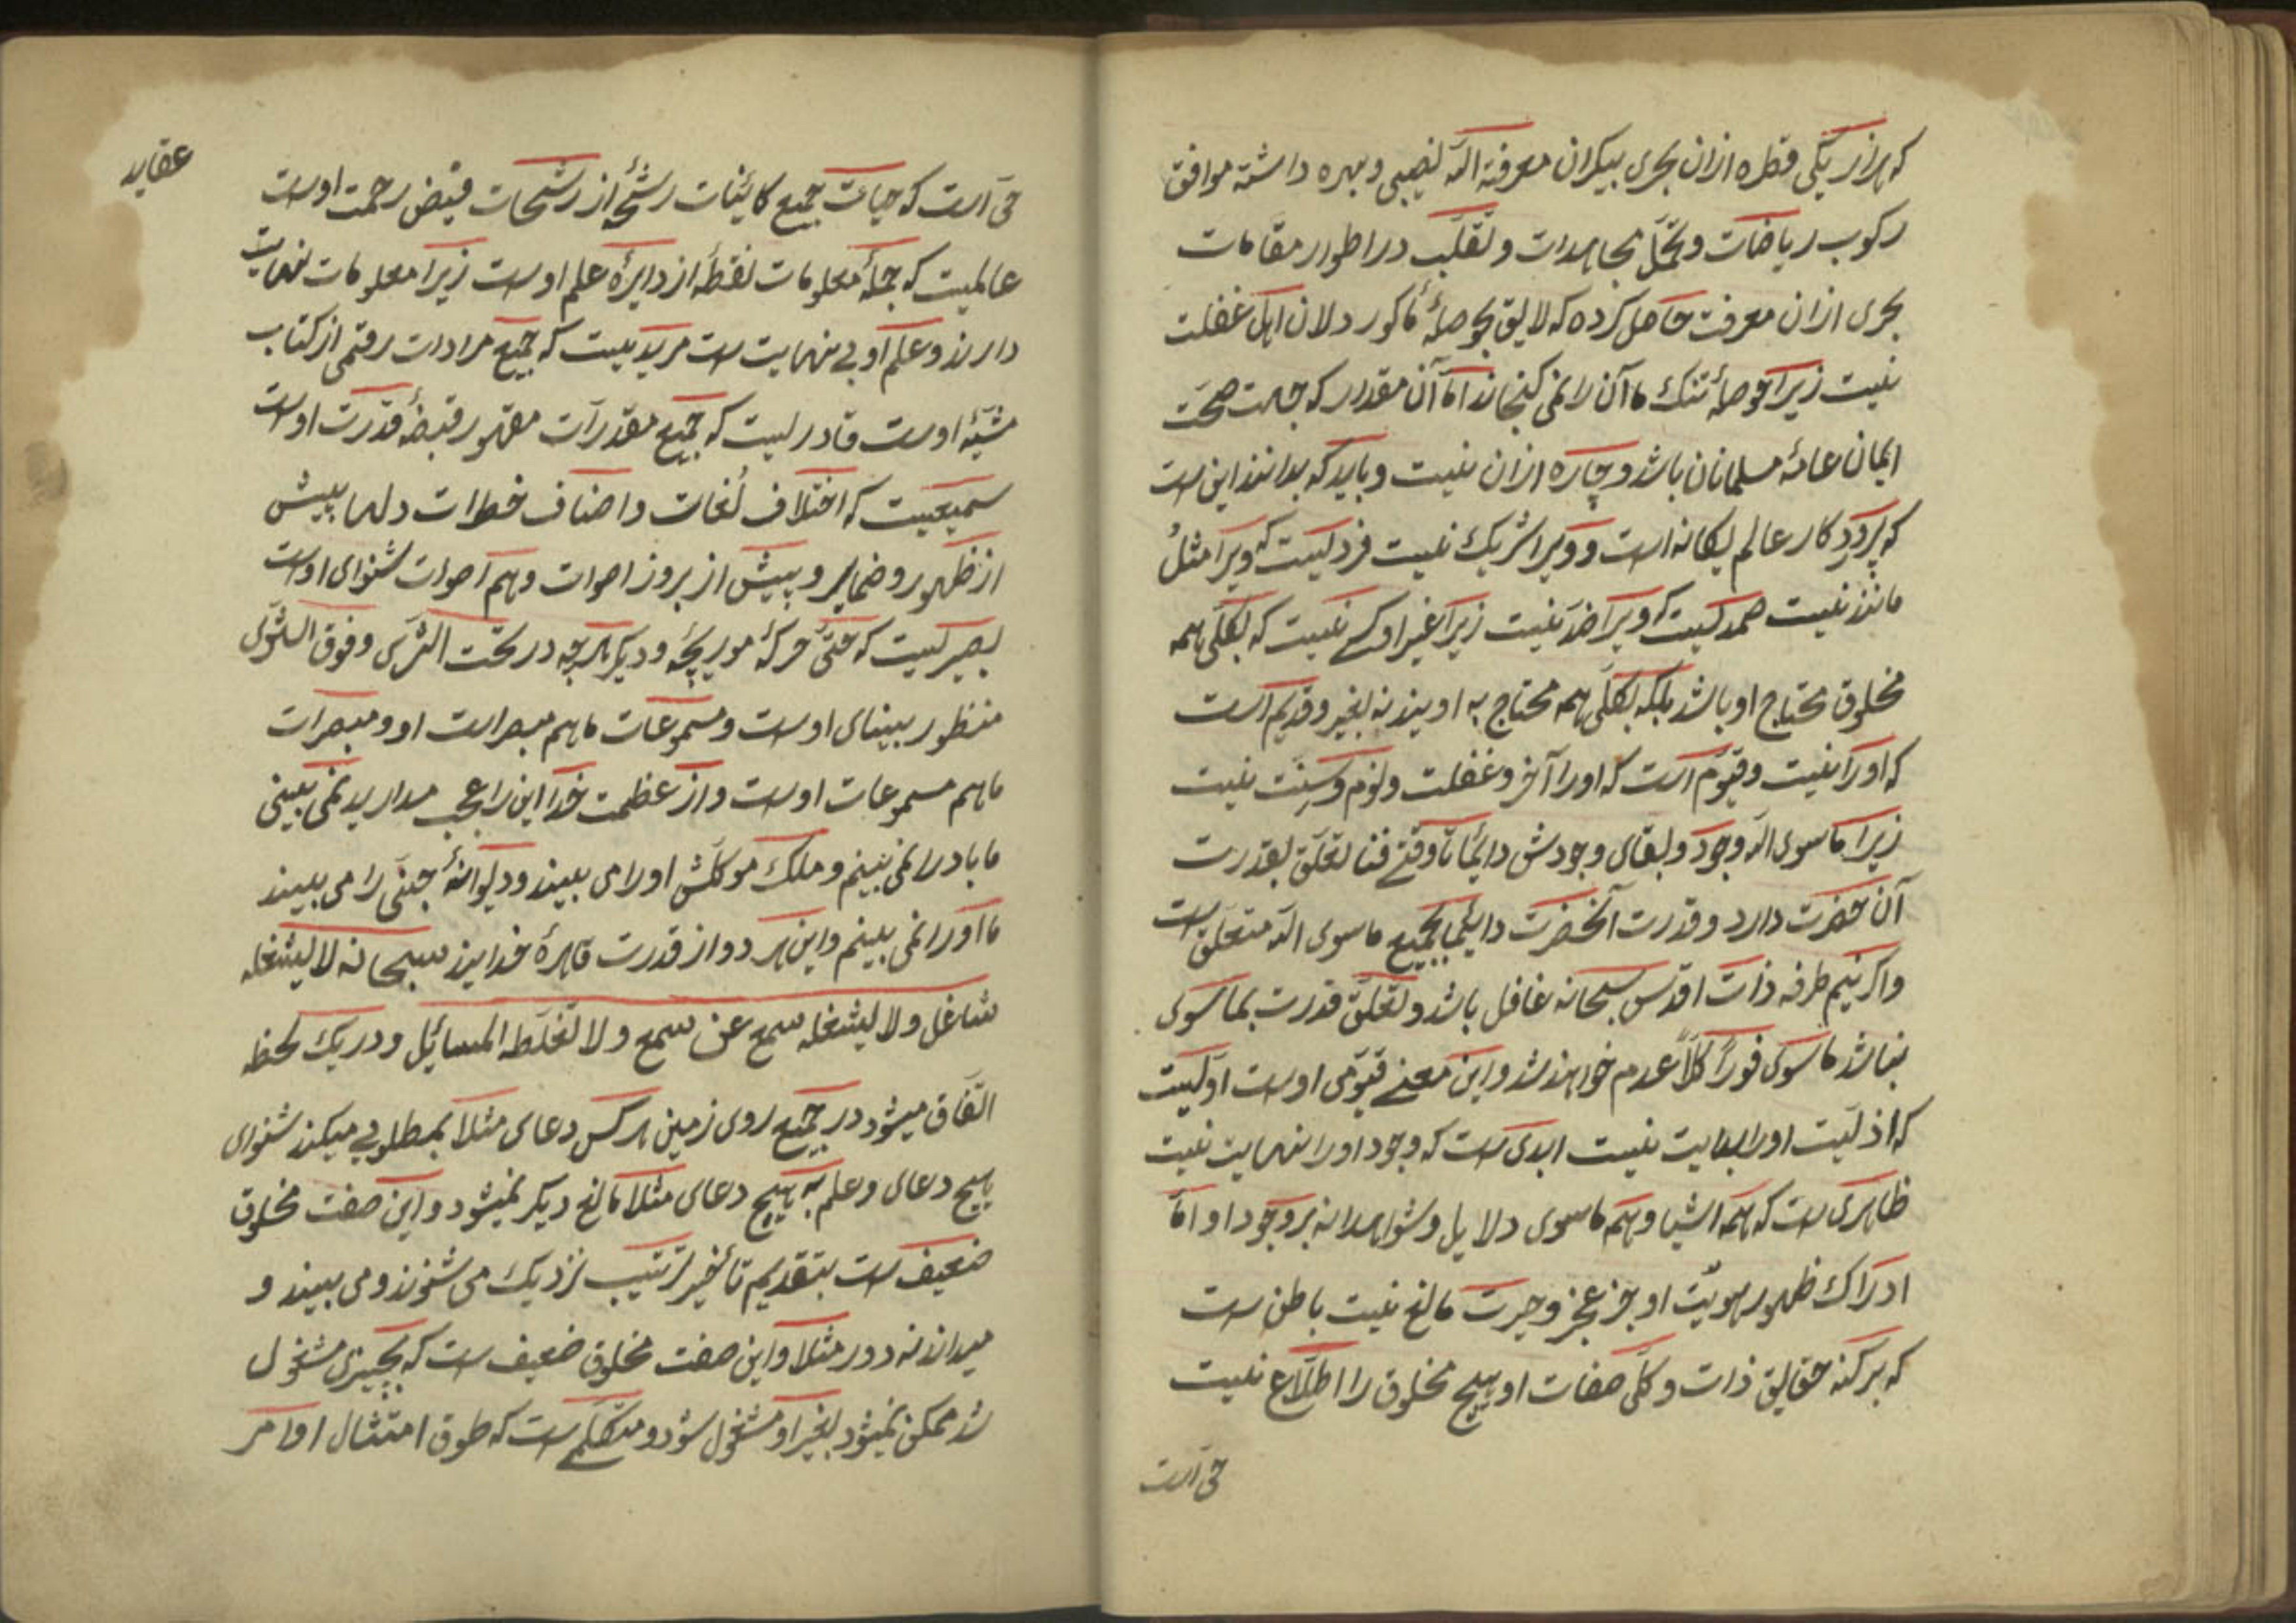 که هر از یکی قطره ازان بحری بیکران معرفة الله نصیبی و بهره داشته موافق
رکوب ریاضات و تحمّل مجاهدات و تقلّب در اطوار مقامات
بحری ازان معرفت حاصل کرده که لایق بحوصلهٔ ما کور دلان اهل غفلت
نیست زیرا حوصلهٔ تنک ما آن را نمی کنجاند امّا آن مقدار که جهت صحّت
ایمان عامهٔ مسلمانان باشد و چاره ازان نیست و باید که بدانند این ست
که پروردکار عالم یکانه است و ویرا شریک نیست فردیست که ویرا مثل
مانند نیست صمدیست که ویرا ضد نیست زیرا غیر او کسے نیست که بکلّی همه
مخلوق محتاج او باشد بلکه بکلّی همه محتاج به اویند نه بغیر و قدیم است
که اورا نیست و قیّوم است که اورا آخر و غفلت و نوم و سِنَت نیست
زیرا ماسوی الله وجود و بقای وجودش دایمًا تا وقتے فنا تعلّق بقدرت
آن حضرت دارد و قدرت آنحضرت دایمًا بجمیع ماسوی الله متعلّق ست
واکر نیم طرفه ذات اقدس سبحانه غافل باشد و تعلّق قدرت بماسوی
نباشد ماسوی فورًا کلًّا عدم خواهند شد و این معنے قیّومی اوست اوّلیست
که ازلیّت اورا بدایت نیست ابدی ست که وجود اورا نهایت نیست
ظاهری ست که همه اشیا و همه ماسوی دلایل و شواهداند بر وجود او امّا
ادراک ظهور هویّت او جز عجز و حیرت مانع نیست باطن ست
که بر کنه حقایق ذات و کلّی صفات او هیچ مخلوق را اطلّاع نیست
حی است
عقاید
حی است که حیات جمیع کائنات رشحهٔ از رشحات فیض رحمت اوست
عالمیست که جملهٔ معلومات نقطهٔ از دایرهٔ علم اوست زیرا معلومات نهایت
دارند و علم او بے نهایت ست مریدیست که جمیع مرادات رقمی از کتاب
مشیّه اوست قادریست که جمیع مقدّرات مقهور قبضهٔ قدرت اوست
سمیعیست که اختلاف لُغات و اصناف خطرات دلها پیش
از ظهور و ضمایر و پیش از بروز اصوات و هم اصوات شنوای اوست
بصیریست که حتّی حرکهٔ موریچهٔ و دیکر هرچه در تحت الثرٰی و فوق
منظور بینای اوست و مسموعات ما هم مبصرات او و مبصرات
ما هم مسموعات اوست و از عظمت خدا این را عجب مدارید نمی بینی
ما باد را نمی بینم و ملک موکّلش او را می بیند و دیوانهٔ جنّی را می بیند
ما او را نمی بینم و این هر دو از قدرت قاهرهٔ خدایند سبحانه لا یشغله
شاغل ولا یشغله سمع عن سمع ولا تغلّطه المسائل و در یک لحظه
اتّفاق میشود در جمیع روی زمین هر کس دعای مثلا بمطلوبے میکند شنوای
بهیچ دعای و علم به هیچ دعای مثلا مانع دیکر نمیشود و این صفت مخلوق
ضعیف ست بتقدیم تأخیر ترتیب نزدیک می شنوند و می بیند و
میدانند نه دور مثلا و این صفت مخلوق ضعیف ست که بچیزی مشغول
شد ممکن نمیشود بغیر او مشغول شود و متکلّم ست که طوق امتثال اوامر